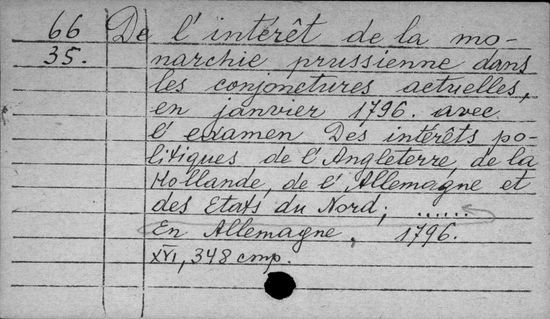 66 De l'intérêt de la mo-
35. narchie prussienne dans
les conjonctures actuelles,
en janvier 1796. avec
l'examen Des intérêts po-
litiques de l'Angleterre, de la
Hollande, de l'Allemagne et
des Etats du Nord; ......
En Allemagne, 1796.
XVI, 348 cmp.